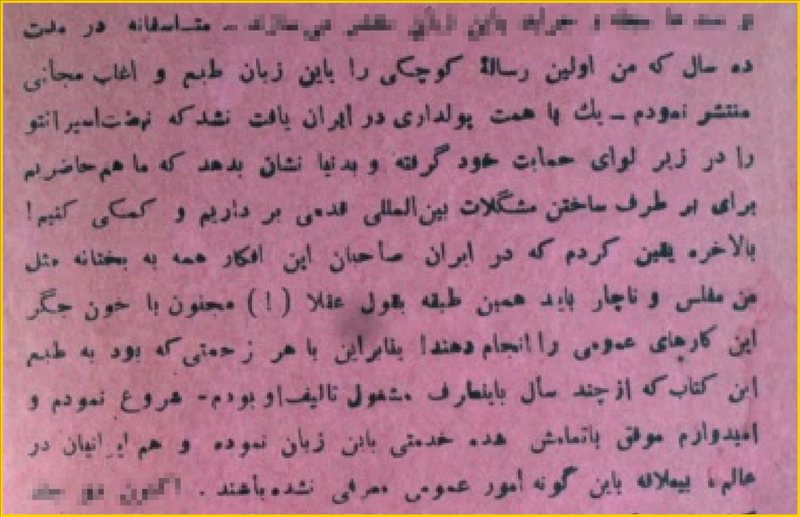 متاسفانه در مدت
ده سال که من اولین رسالۀ کوچکی را باین زبان طبع و اغلب مجانی
منتشر نمودم ـ یك با همت پولداری در ایران یافت نشد که نهضت اسپرانتو
را در زیر لوای حمایت خود گرفته و بدنیا نشان بدهد که ما هم حاضریم
برای بر طرف ساختن مشگلات بین‌المللی قدمی بر داریم و کمکی کنیم!
بالاخره یقین کردم که در ایران صاحبان این افکار همه به بختانه مثل
من مفلس و ناچار باید همین طبقه بقول عقلا (!) مجنون با خون جگر
این کارهای عمومی را انجام دهند! بنابراین با هر زحمتی که بود به طبع
این کتاب که از چند سال باینطرف مشغول تالیف او بودم- شروع نمودم و
امیدوارم موفق باتمامش شده خدمتی باین زبان نموده و هم ایرانیان در
عالم، بیعلاقه باین گونه امور عمومی معرفی نشده باشند.